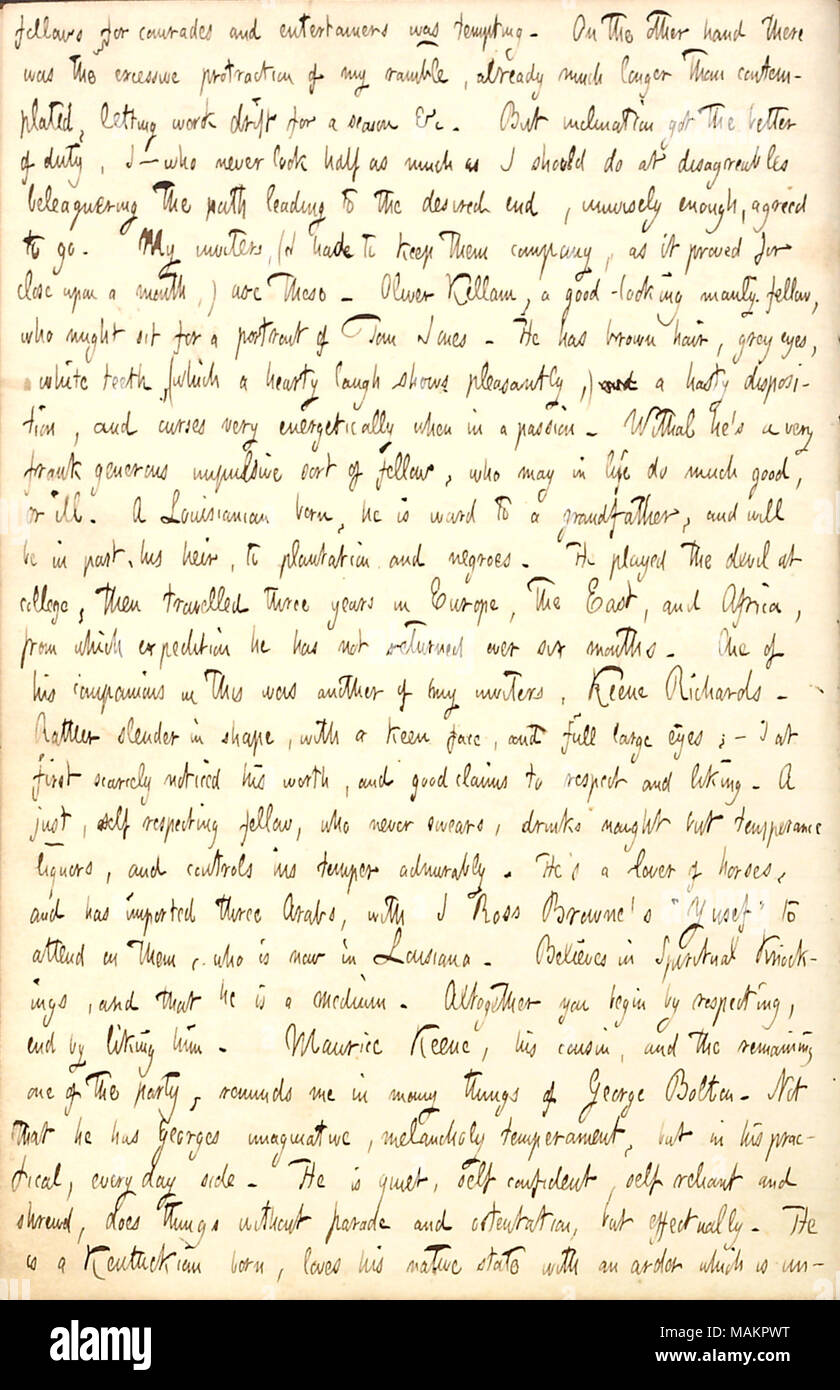 fellows, for comrades and entertainers was tempting. On the other hand there
was the excessive protraction of my ramble, already much longer than contem-
plated, letting work drift for a season &c. But inclination got the better
of duty, I — who never look half as much as I should do at disagreeables
beleaguering the path leading to the desired end, unwisely enough, agreed
to go. My inviters, (I had to keep them company, as it proved for
close upon a month,) are these — Oliver Kellam, a good-looking manly fellow,
who might sit for a portrait of Tom Jones. He has brown hair, grey eyes,
white teeth, (which a hearty laugh shows pleasantly,) a hasty disposi-
tion, and curses very energetically when in a passion. Withal he's a very
frank generous impulsive sort of fellow, who may in life do much good,
or ill. A Louisianian born, he is ward to a grandfather, and will
be in part, his heir, to plantation and negroes. He played the devil at
college, then travelled three years in Europe, the East, and Africa,
from which expedition he has not returned over six months. One of
his companions in this was another of my inviters, Keene Richards.
Rather slender in shape, with a keen face, and full large eyes; — I at
first scarcely noticed his worth, and good claims to respect and liking. A
just, self respecting fellow, who never swears, drinks naught but temperance
liquors, and controls his temper admirably. He's a lover of horses,
and has imported three Arabs, with J Ross Browne's "Yusef" to
attend on them, who is now in Lousiana. Believes in Spiritual Knock-
ings, and that he is a medium. Altogether you begin by respecting,
end by liking him. Maurice Keene, his cousin, and the remaining
one of the party, reminds me in many things of George Bolton. Not
that he has Georges imaginative, melancholy temperament, but in his prac-
tical, every day side. He is quiet, self confident, self reliant and
shrewd, does things without parade and ostentation, but effectually. He
is a Kentuckian born, loves his native state with an ardor which is un-
alamy
Image ID: MAKPWT
www.alamy.com